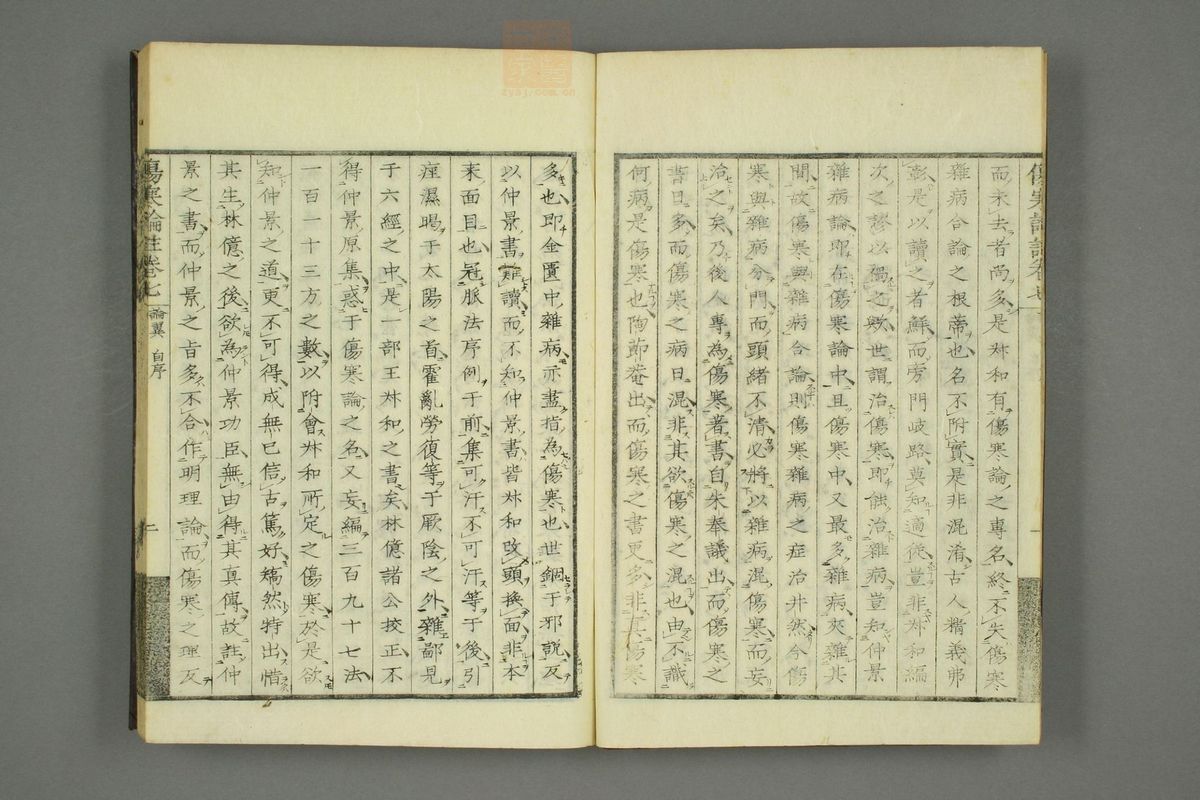 而未去者尚多是叔和有傷寒論之專名終不失傷寒
雜病合論之根蒂也名不附實是非混淆古人精義弗
彰是以讀之者鮮而旁門岐路莫知適從豈非叔和編
次之謬以禍之歟世謂治傷寒即能治雜病豈知仲景
雜病論即在傷寒論中且傷寒中又最多雜病夾雜其
間故傷寒與雜病合論則傷寒雜病之症治井然今傷
寒與雜病分門而頭緒不清必將以雜病混傷寒而妄
治之矣乃後人專為傷寒著書自朱奉議出而傷寒之
書日多而傷寒之病日混非其欲傷寒之混也由不識
何病是傷寒也陶節菴出而傷寒之書更多非真傷寒
傷寒論註卷七
多也即金匱中雜病亦盡指為傷寒也世錮于邪說反
以仲景書難讀而不知仲景書皆叔和改頭換面非本
来面目也冠脈法序例于前集可汗不可汗等于後引
痙濕暍于太陽之首霍亂勞復等于厥陰之外雜鄙見
于六經之中是一部王叔和之書矣林億諸公挍正不
得仲景原集惑于傷寒論之名又妄編三百九十七法
一百一十三方之數以附會叔和所定之傷寒於是欲
知仲景之道更不可得成無已信古篤好矯然特出惜
其生林億之後欲為仲景功臣無由得其真傳故註仲
景之書而仲景之旨多不合作明理論而傷寒之理反
傷寒論註卷七
論翼 自序
zysj.com.cn